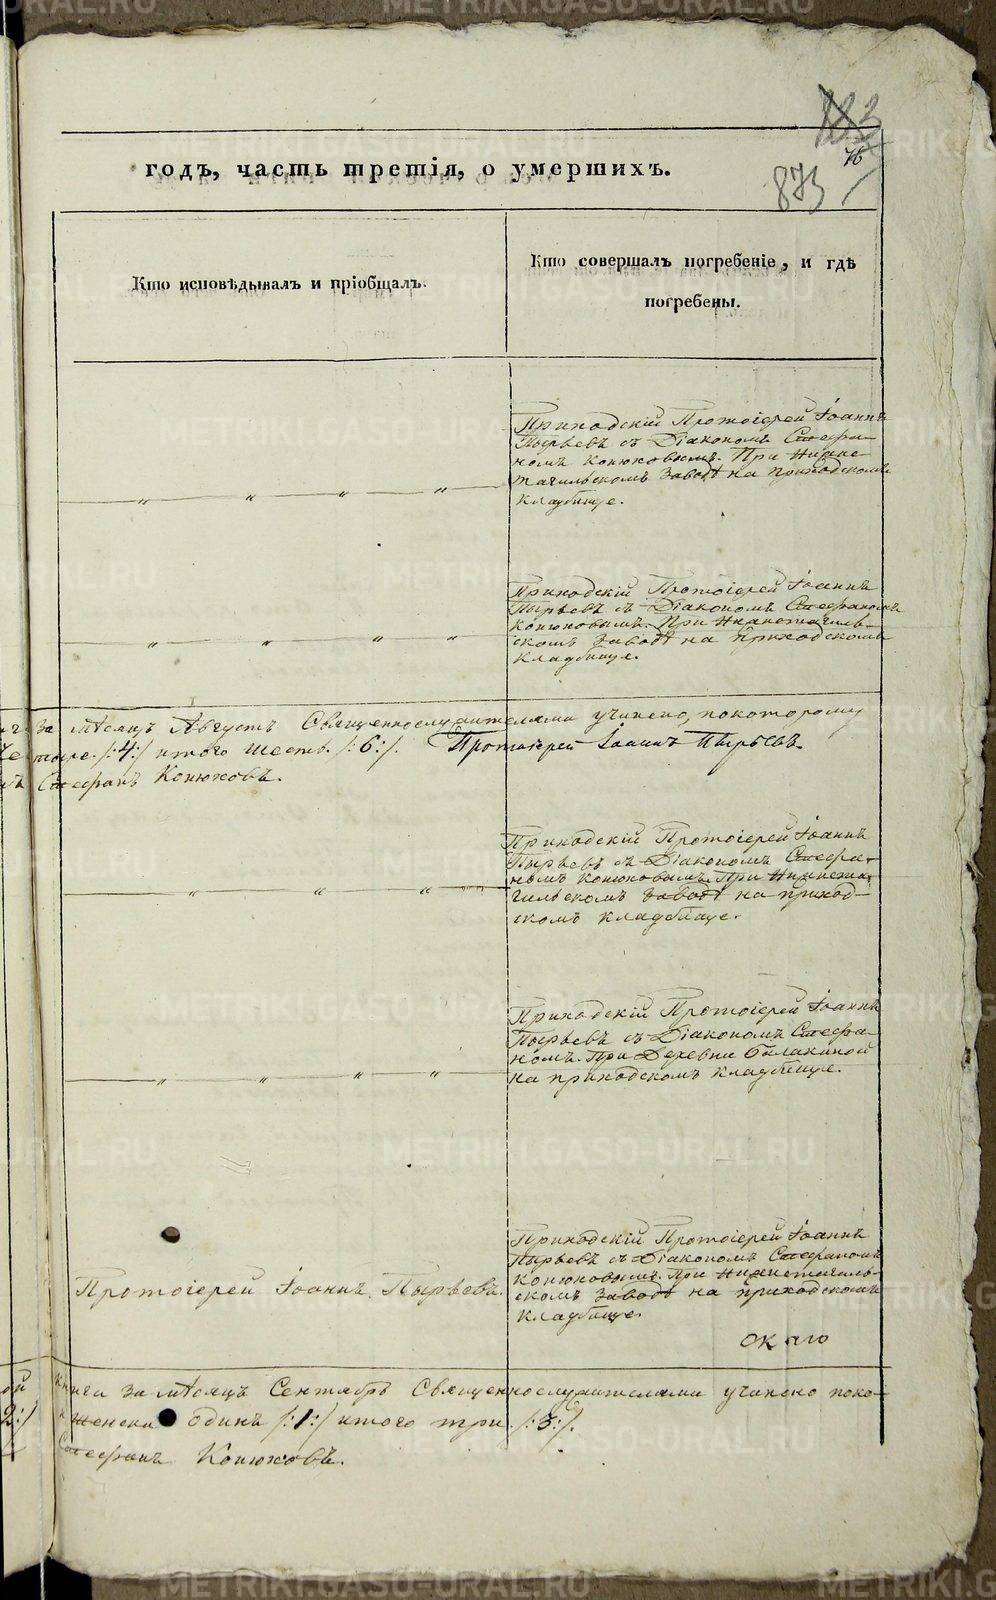 183
76
873
годъ, часть третія, о умершихъ.
Кто исповѣдывалъ и пріобщалъ.
Кто совершалъ погребеніе, и гдѣ
погребены.
Приходскій Протоіерей Іоаннъ
Пырьевъ съ Діакономъ Стефа-
номъ Конюховымъ. При Нижне-
тагильскомъ Заводѣ на приходскомъ
кладбище.
Приходскій Протоіерей Іоаннъ
Пырьевъ съ Діакономъ Стефаномъ
Конюховымъ. При Нижнетагиль-
скомъ Заводѣ на Приходскомъ
кладбище.
за мѣсяцъ Августъ Священнослужителями учинено, покоторому
/:4:/ итого шесть. /:6:/. Протоіерей Іоаннъ Пырьевъ.
Стефанъ Конюховъ.
Приходскій Протоіерей Іоаннъ
Пырьевъ съ Діакономъ Стефа-
номъ Конюховымъ. При Нижнета-
гильскомъ Заводѣ на приход-
скомъ кладбище.
Приходскій Протоіерей Іоаннъ
Пырьевъ съ Діакономъ Стефа-
номъ. При Деревни Балакиной
на приходскомъ кладбище.
Протоіерей Іоаннъ Пырьевъ.
Приходскій Протоіерей Іоаннъ
Пырьевъ съ Діакономъ Стефаномъ
Конюховымъ. При Нижнетагиль-
скомъ Заводѣ на приходскомъ
кладбище.
окаго
книга за мѣсяцъ Сентябрь Священнослужителями учинено поко-
женска одинъ /:1:/ итого три. /:3:/.
Стефанъ Конюховъ.
METRIKI.GASO-URAL.RU